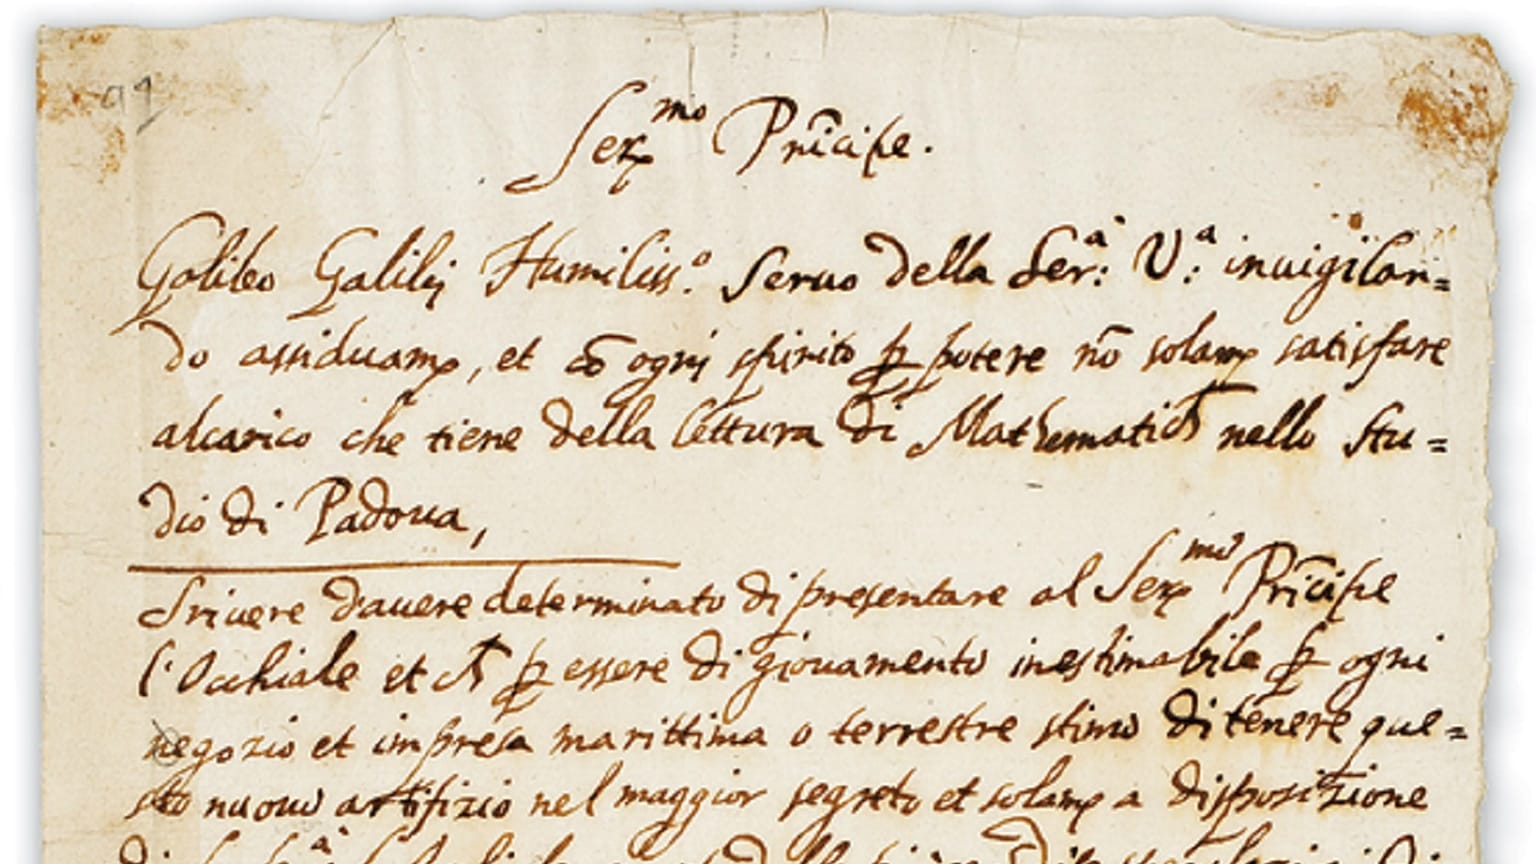 91
Ser.mo Prīcipe.
Galileo Galilej Humiliss.o Seruo della Ser:a V:a inuigilan=
do assiduam., et cō ogni spirito ꝑ potere nō solam. satisfare
alcarico che tiene della lettura di Mathematicħ nello Stu=
dio di Padoua,
Scriuere d'auere determinato di presentare al Ser.mo Prīcipe
l'Occhiale et cħ ꝑ essere di giouamento inestimabile ꝑ ogni
negozio et impresa marittima o terrestre stimo di tenere que=
sto nuouo artifizio nel maggior segreto et solam. a disposizione